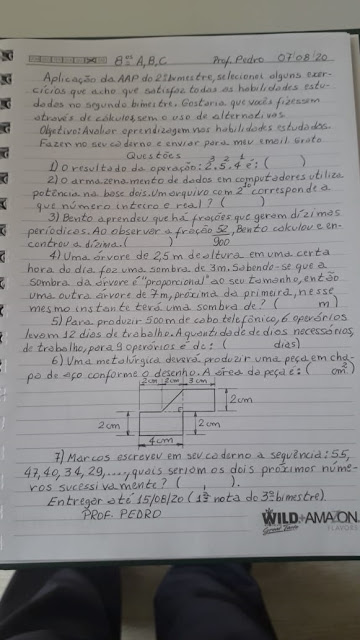 8ºs A,B,C Prof. Pedro 07/08/20
Aplicação da AAP do 2º bimestre, selecionei alguns exer-
cícios que acho que satisfaz todas as habilidades estu-
dadas no segundo bimestre. Gostaria que vocês fizessem
através de cálculos, sem o uso de alternativas
Objetivo: Avaliar aprendizagem nas habilidades estudadas.
Fazer no seu caderno e enviar para meu email. Grato
Questões
1) O resultado da operação: 2³.5².4¹ é: ( )
2) O armazenamento de dados em computadores utiliza
potência na base dois. Um arquivo com 2¹⁰ corresponde a
que número inteiro e real? ( )
3) Bento aprendeu que há frações que geram dízimas
periódicas. Ao observar a fração 52/900, Bento calculou e en-
controu a dízima. ( )
4) Uma árvore de 2,5 m de altura, em uma certa
hora do dia faz uma sombra de 3m. Sabendo-se que a
sombra da árvore é "proporcional" ao seu tamanho, então
uma outra árvore de 7m, próxima da primeira, nesse
mesmo instante terá uma sombra de? ( m)
5) Para produzir 500m de cabo telefônico, 6 operários
levam 12 dias de trabalho. A quantidade de dias necessários,
de trabalho, para 9 operários é de: ( dias)
6) Uma metalúrgica deverá produzir uma peça em cha-
pa de aço conforme o desenho. A área da peça é: ( cm²)
2cm 2cm 3cm
2cm
2cm 2cm
4cm
7) Marcos escreveu em seu caderno a sequência: 55,
47, 40, 34, 29, ...., quais seriam os dois próximos núme-
ros sucessivamente? ( , ).
Entregar até 15/08/20 (1ª nota do 3º bimestre).
PROF. PEDRO
WILD AMAZON
FLAVORS